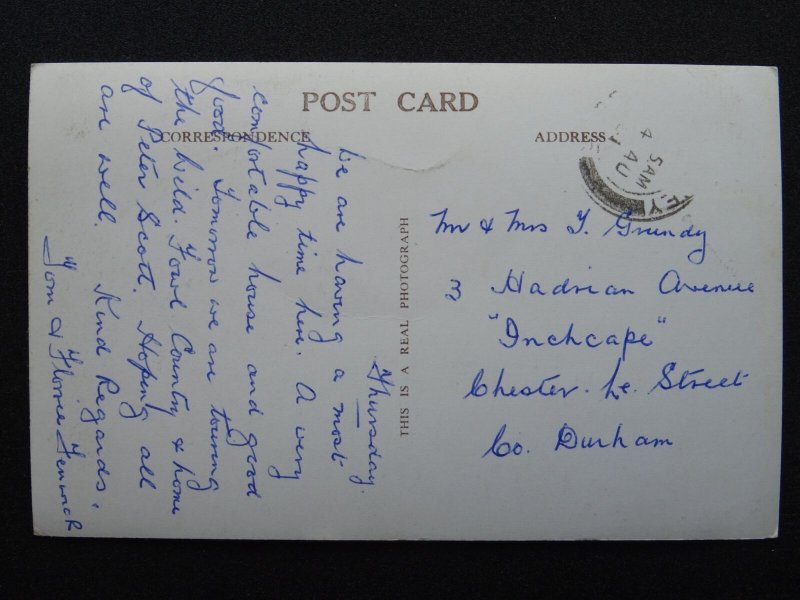 POST CARD
CORRESPONDENCE
ADDRESS
Thursday.
We are having a most
happy time here. A very
comfortable house and good
food. Tomorrow we are touring
the Wild Fowl Country & home
of Peter Scott. Hoping all
are well. Kind Regards,
Tom & Florrie Fenwick
THIS IS A REAL PHOTOGRAPH
5AM
4 AU
Mr & Mrs T. Grundy
3 Hadrian Avenue
"Inchcape"
Chester. Le. Street
Co. Durham